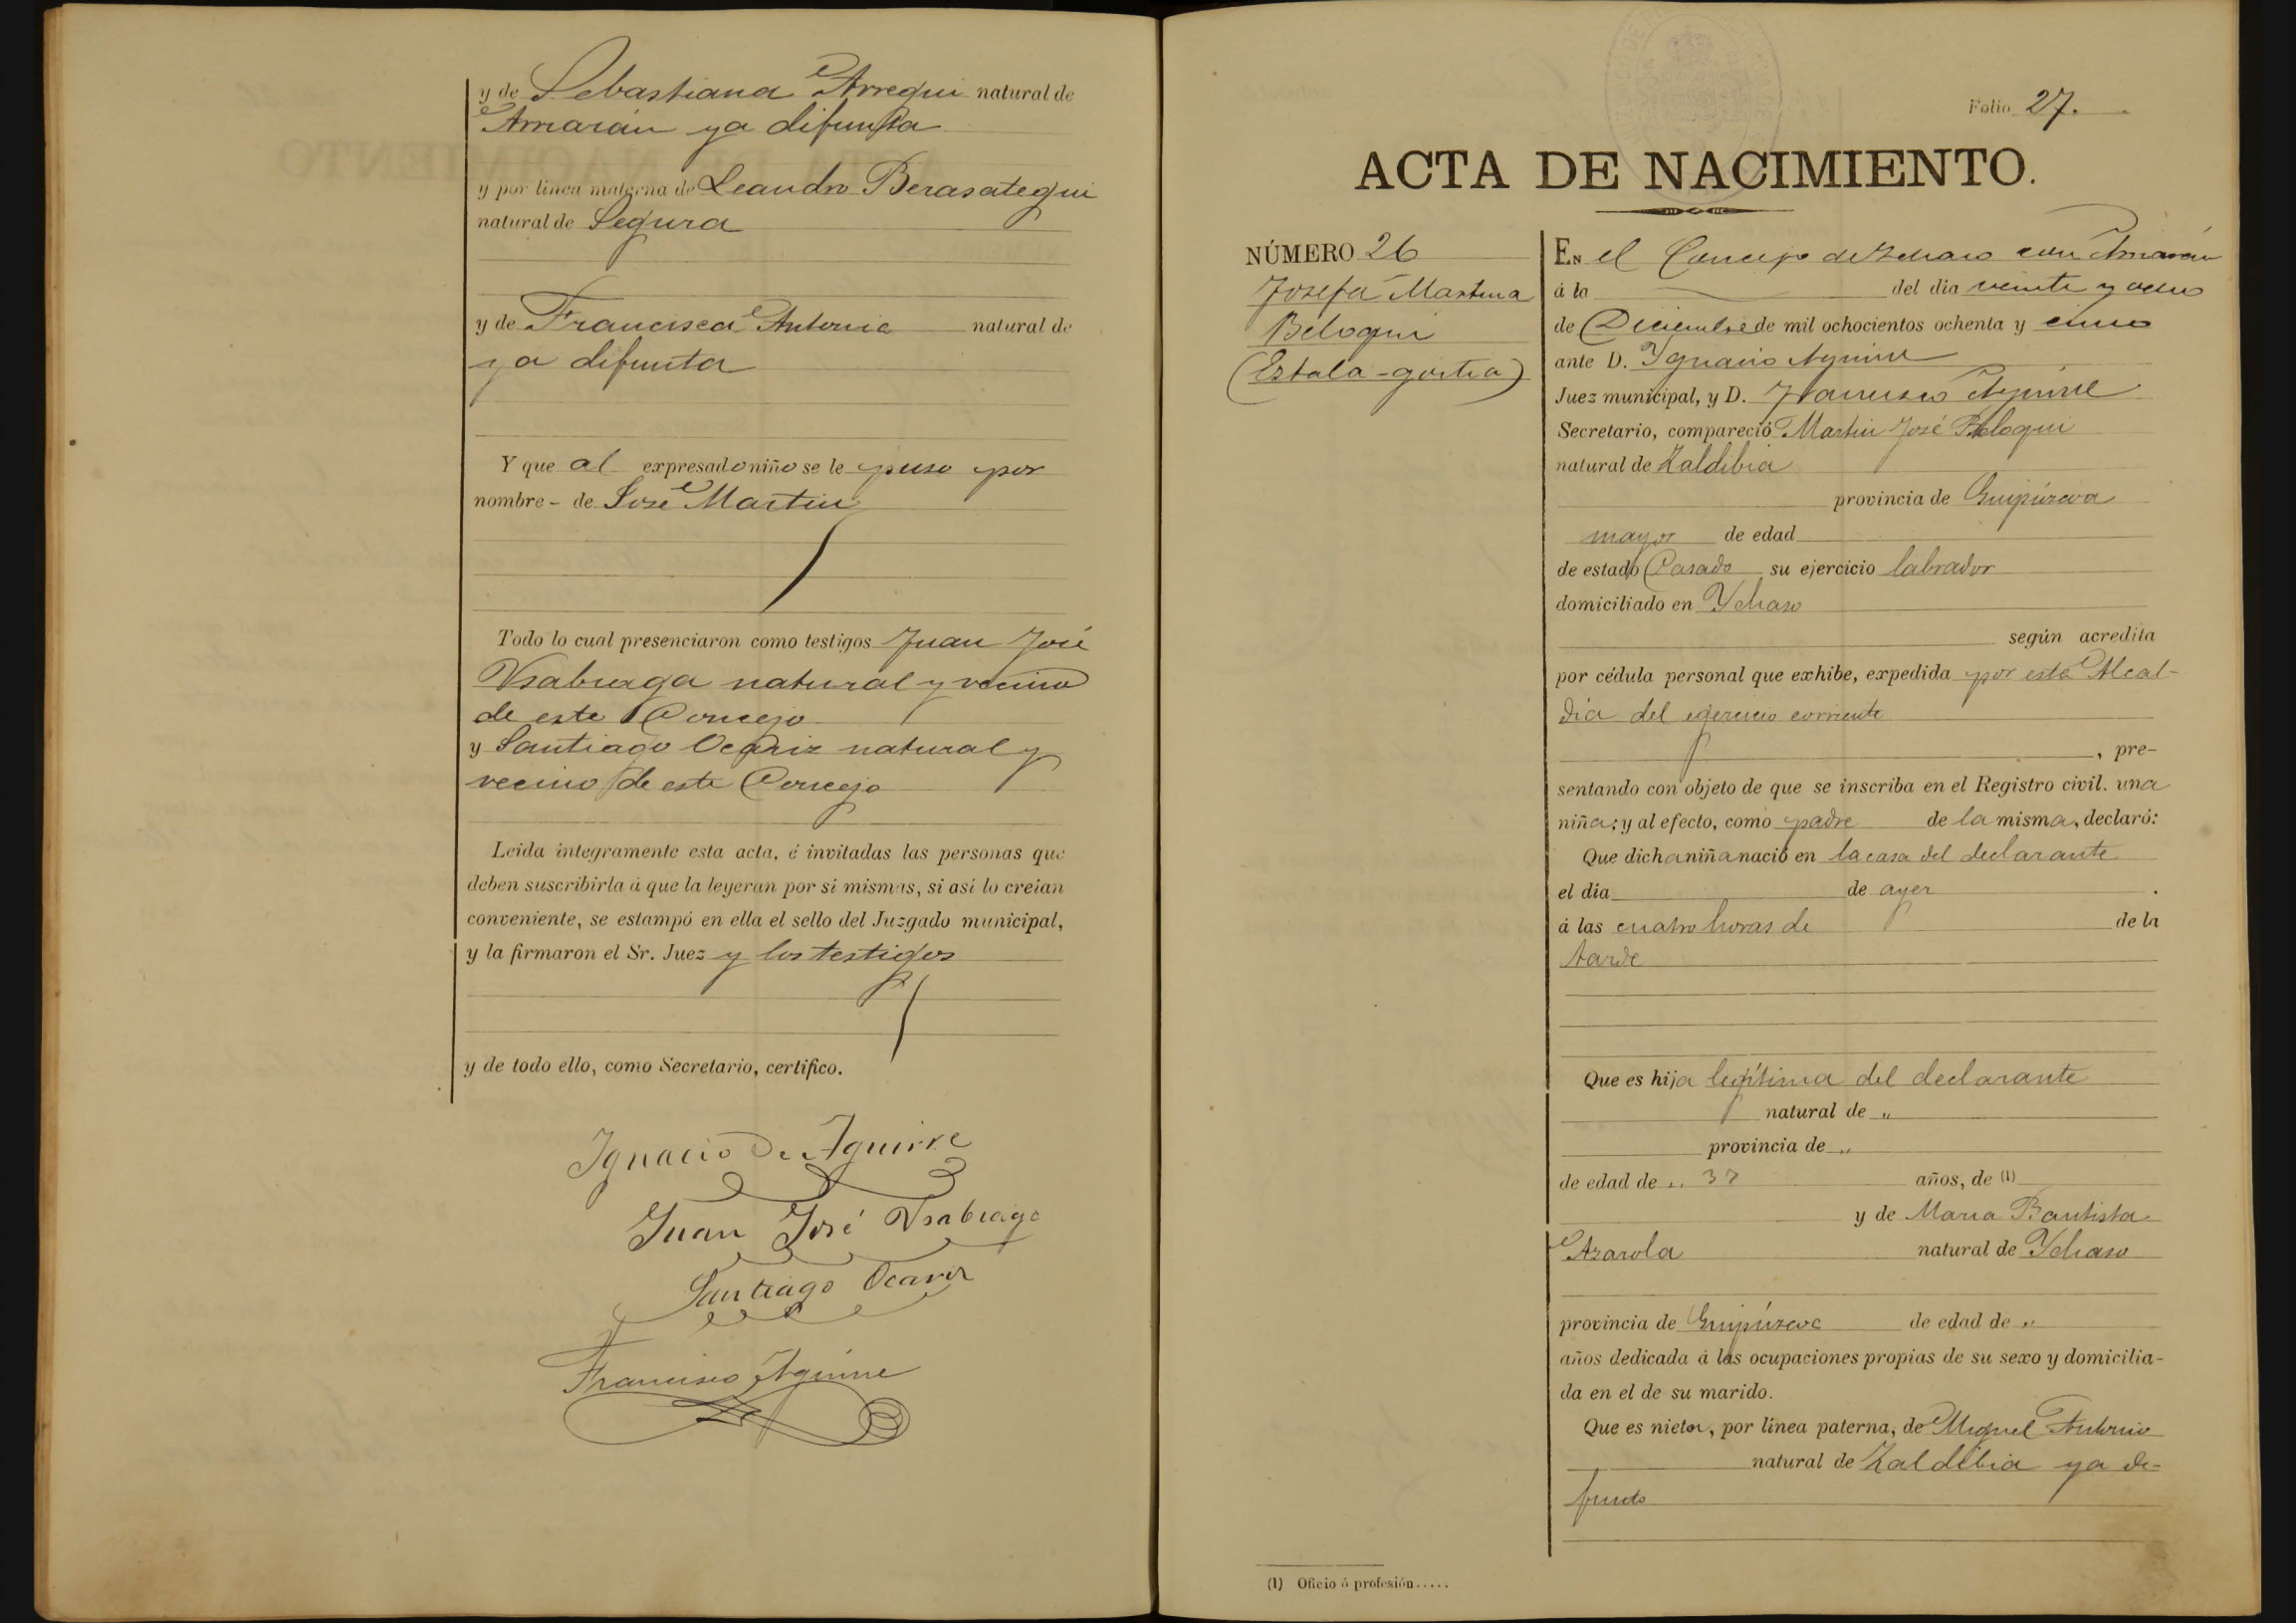 y de Sebastiana Arregui natural de
Amarán ya difunta
y por linea materna de Leandro Berasategui
natural de Segura
y de Francisca Antonia natural de
ya difunta
Y que al expresado niño se le puso por
nombre - de José Martin
Todo lo cual presenciaron como testigos Juan José
Usabiaga natural y vecino
de este Concejo
y Santiago Ocariz natural y
vecino de este Concejo
Leida íntegramente esta acta, é invitadas las personas que
deben suscribirla á que la leyeran por sí mismas, si así lo creían
conveniente, se estampó en ella el sello del Juzgado municipal,
y la firmaron el Sr. Juez y los testigos
y de todo ello, como Secretario, certifico.
Ignacio de Aguirre
Juan José Usabiaga
Santiago Ocariz
Francisco Aguirre
Folio 27.
ACTA DE NACIMIENTO.
NÚMERO 26
Josefa Martina
Beloqui
(Estala-goitia)
EN el Concejo de Ichaso con Amarán
á la del dia veinte y ocho
de Diciembre de mil ochocientos ochenta y cinco
ante D. Ygnacio Aguirre
Juez municipal, y D. Francisco Aguirre
Secretario, compareció Martin José Beloqui
natural de Zaldibia
provincia de Guipúzcoa
mayor de edad
de estado Casado su ejercicio labrador
domiciliado en Ychaso
según acredita
por cédula personal que exhibe, expedida por esta Alcal-
dia del egercicio corriente
, pre-
sentando con objeto de que se inscriba en el Registro civil. una
niña; y al efecto, como padre de la misma, declaró:
Que dicha niña nació en la casa del declarante
el dia de ayer .
á las cuatro horas de de la
tarde
Que es hija legítima del declarante
natural de „
provincia de „
de edad de „ 37 años, de (1)
y de Maria Bautista
Azarola natural de Ychaso
provincia de Guipúzcoa de edad de „
años dedicada á las ocupaciones propias de su sexo y domicilia-
da en el de su marido.
Que es nieta, por línea paterna, de Miguel Antonio
natural de Zaldibia ya di-
funto
(1) Oficio ó profesión.....